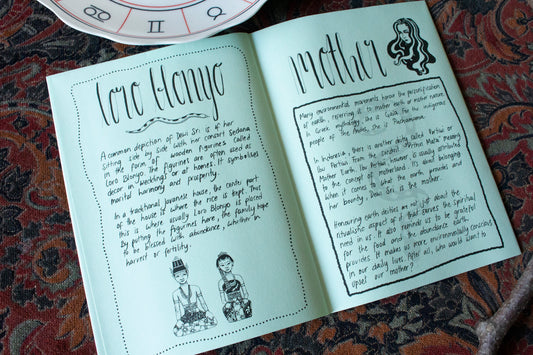 Loro Blonyo
A common depiction of Dewi Sri is of her
sitting side by side with her consort Sedana
in the form of wooden figurines called
Loro Blonyo. The figurines are often used as
decor in weddings or at homes. It symbolises
marital harmony and prosperity.
In a traditional Javanese house, the center part
of the house is where the rice is kept. This
is where usually Loro Blonyo is placed
By putting the figurines here, the family hope
to be blessed with abundance, whether in
harvest or fertility.
Mother
Many environmental movements honor the personification
of earth, referring is to mother earth or mother nature
In Greek mythology, she is Gaia. For the indigenous
people of the Andes, she is Pachamama.
In Indonesia, there is another deity called Pertiwi or
Ibu Pertiwi from the Sanskrit Prithvi Mata meaning
Mother Earth. Ibu Pertiwi, however, is usually attributed
to the concept of motherland. It's about belonging
when it comes to what the earth provides and
her bounty, Dewi Sri is the mother.
Honouring earth deities are not just about the
ritualistic aspect of it that serves the spiritual
need in us. It also reminds us to be grateful
for the food and the abundance nature
provides. It makes us more environmentally conscious
in our daily lives. After all, who would want to
upset our mother?